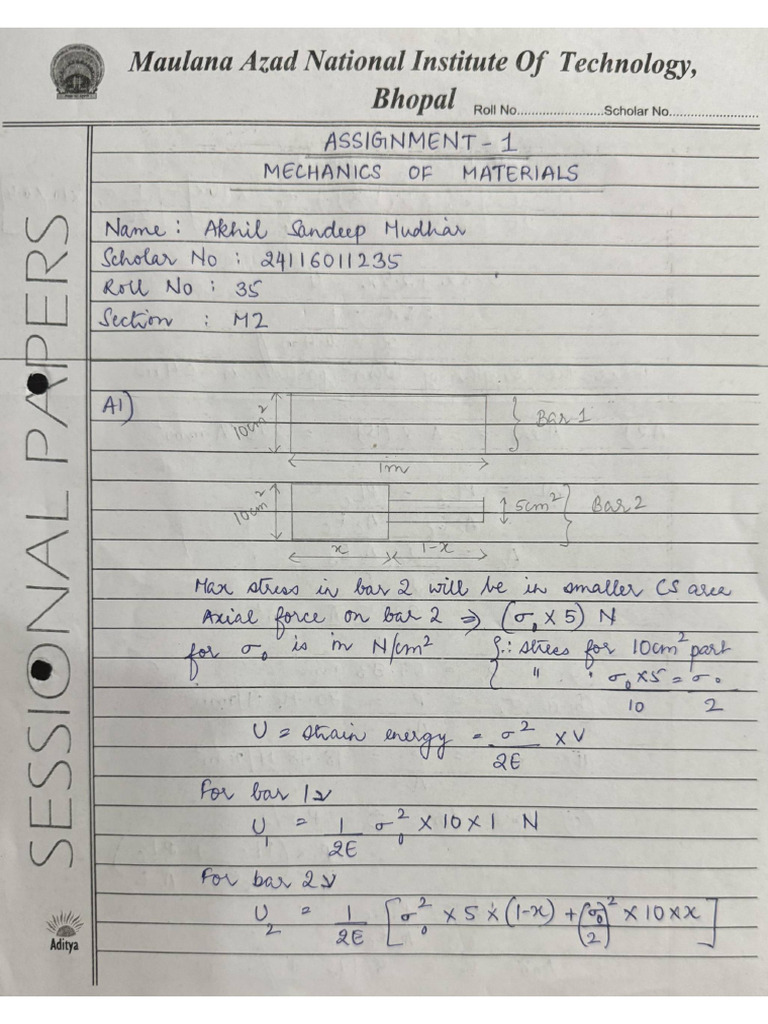 Maulana Azad National Institute Of Technology,
Bhopal Roll No........................Scholar No.........................
ASSIGNMENT - 1
MECHANICS OF MATERIALS
SESSIONAL PAPERS
Name : Akhil Sandeep Mudhar
Scholar No : 24116011235
Roll No : 35
Section : M2
A1)
10cm² } Bar 1
1m
10cm² 5cm² } Bar 2
x 1-x
Max stress in bar 2 will be in smaller CS area
Axial force on bar 2 ⇒ (σ₀ x 5) N
for σ₀ is in N/cm² {∵ stress for 10cm² part
{ " " σ₀x5/10 = σ₀/2
U = strain energy = σ²/2E x V
For bar 1
U₁ = 1/2E σ₀² x 10 x 1 N
For bar 2
U₂ = 1/2E [σ₀² x 5 x (1-x) + (σ₀/2)² x 10 x x]
Aditya